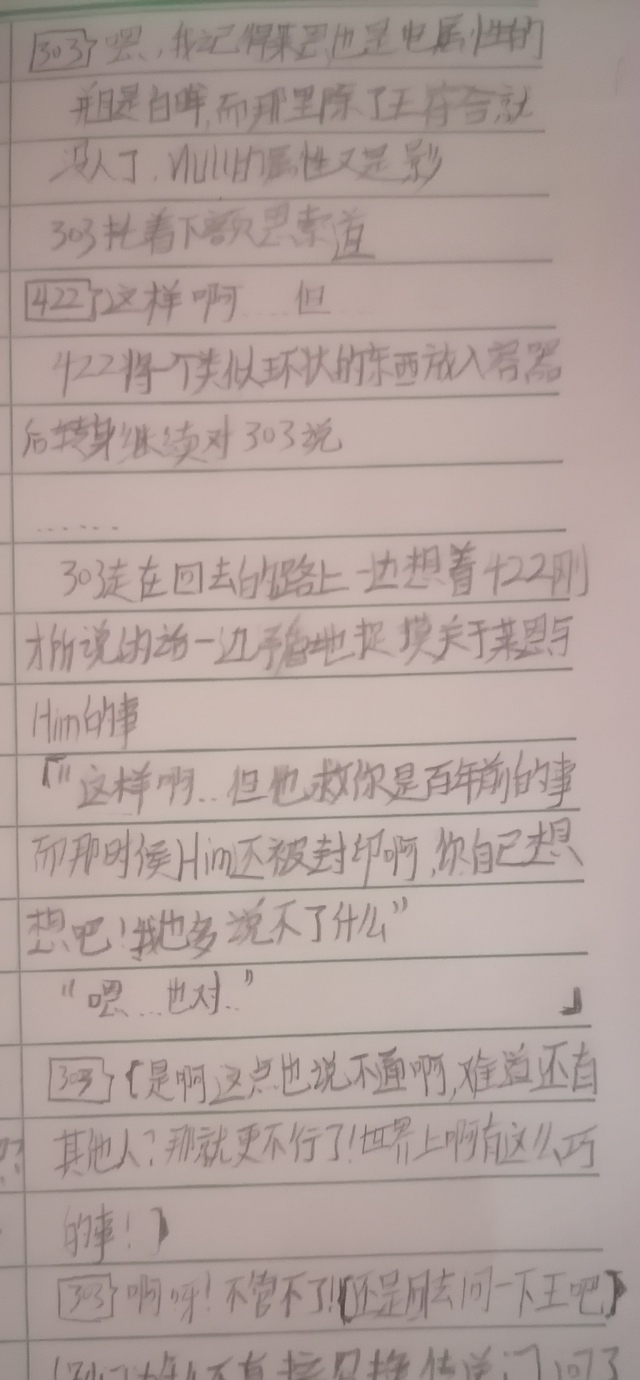 303} 嗯,我记得莱恩也是电属性的
并且是白眸,而那里除了王符合就
没人了,Null的属性又是影
303托着下颚思索道
422}这样啊……但
422将一个类似环状的东西放入容器
后转身继续对303说
……
303走在回去的路上一边想着422刚
才所说的话一边 地捉摸关于莱恩与
Him的事
「"这样啊…但他救你是百年前的事
而那时候Him还被封印啊,你自己想
想吧!我也多说不了什么"
"嗯…也对.." 」
303}{是啊这点也说不通啊,难道还有
其他人?那就更不行了!世界上啊有这么巧
的事!}
303}啊呀!不管不了!{还是回去问一下王吧}